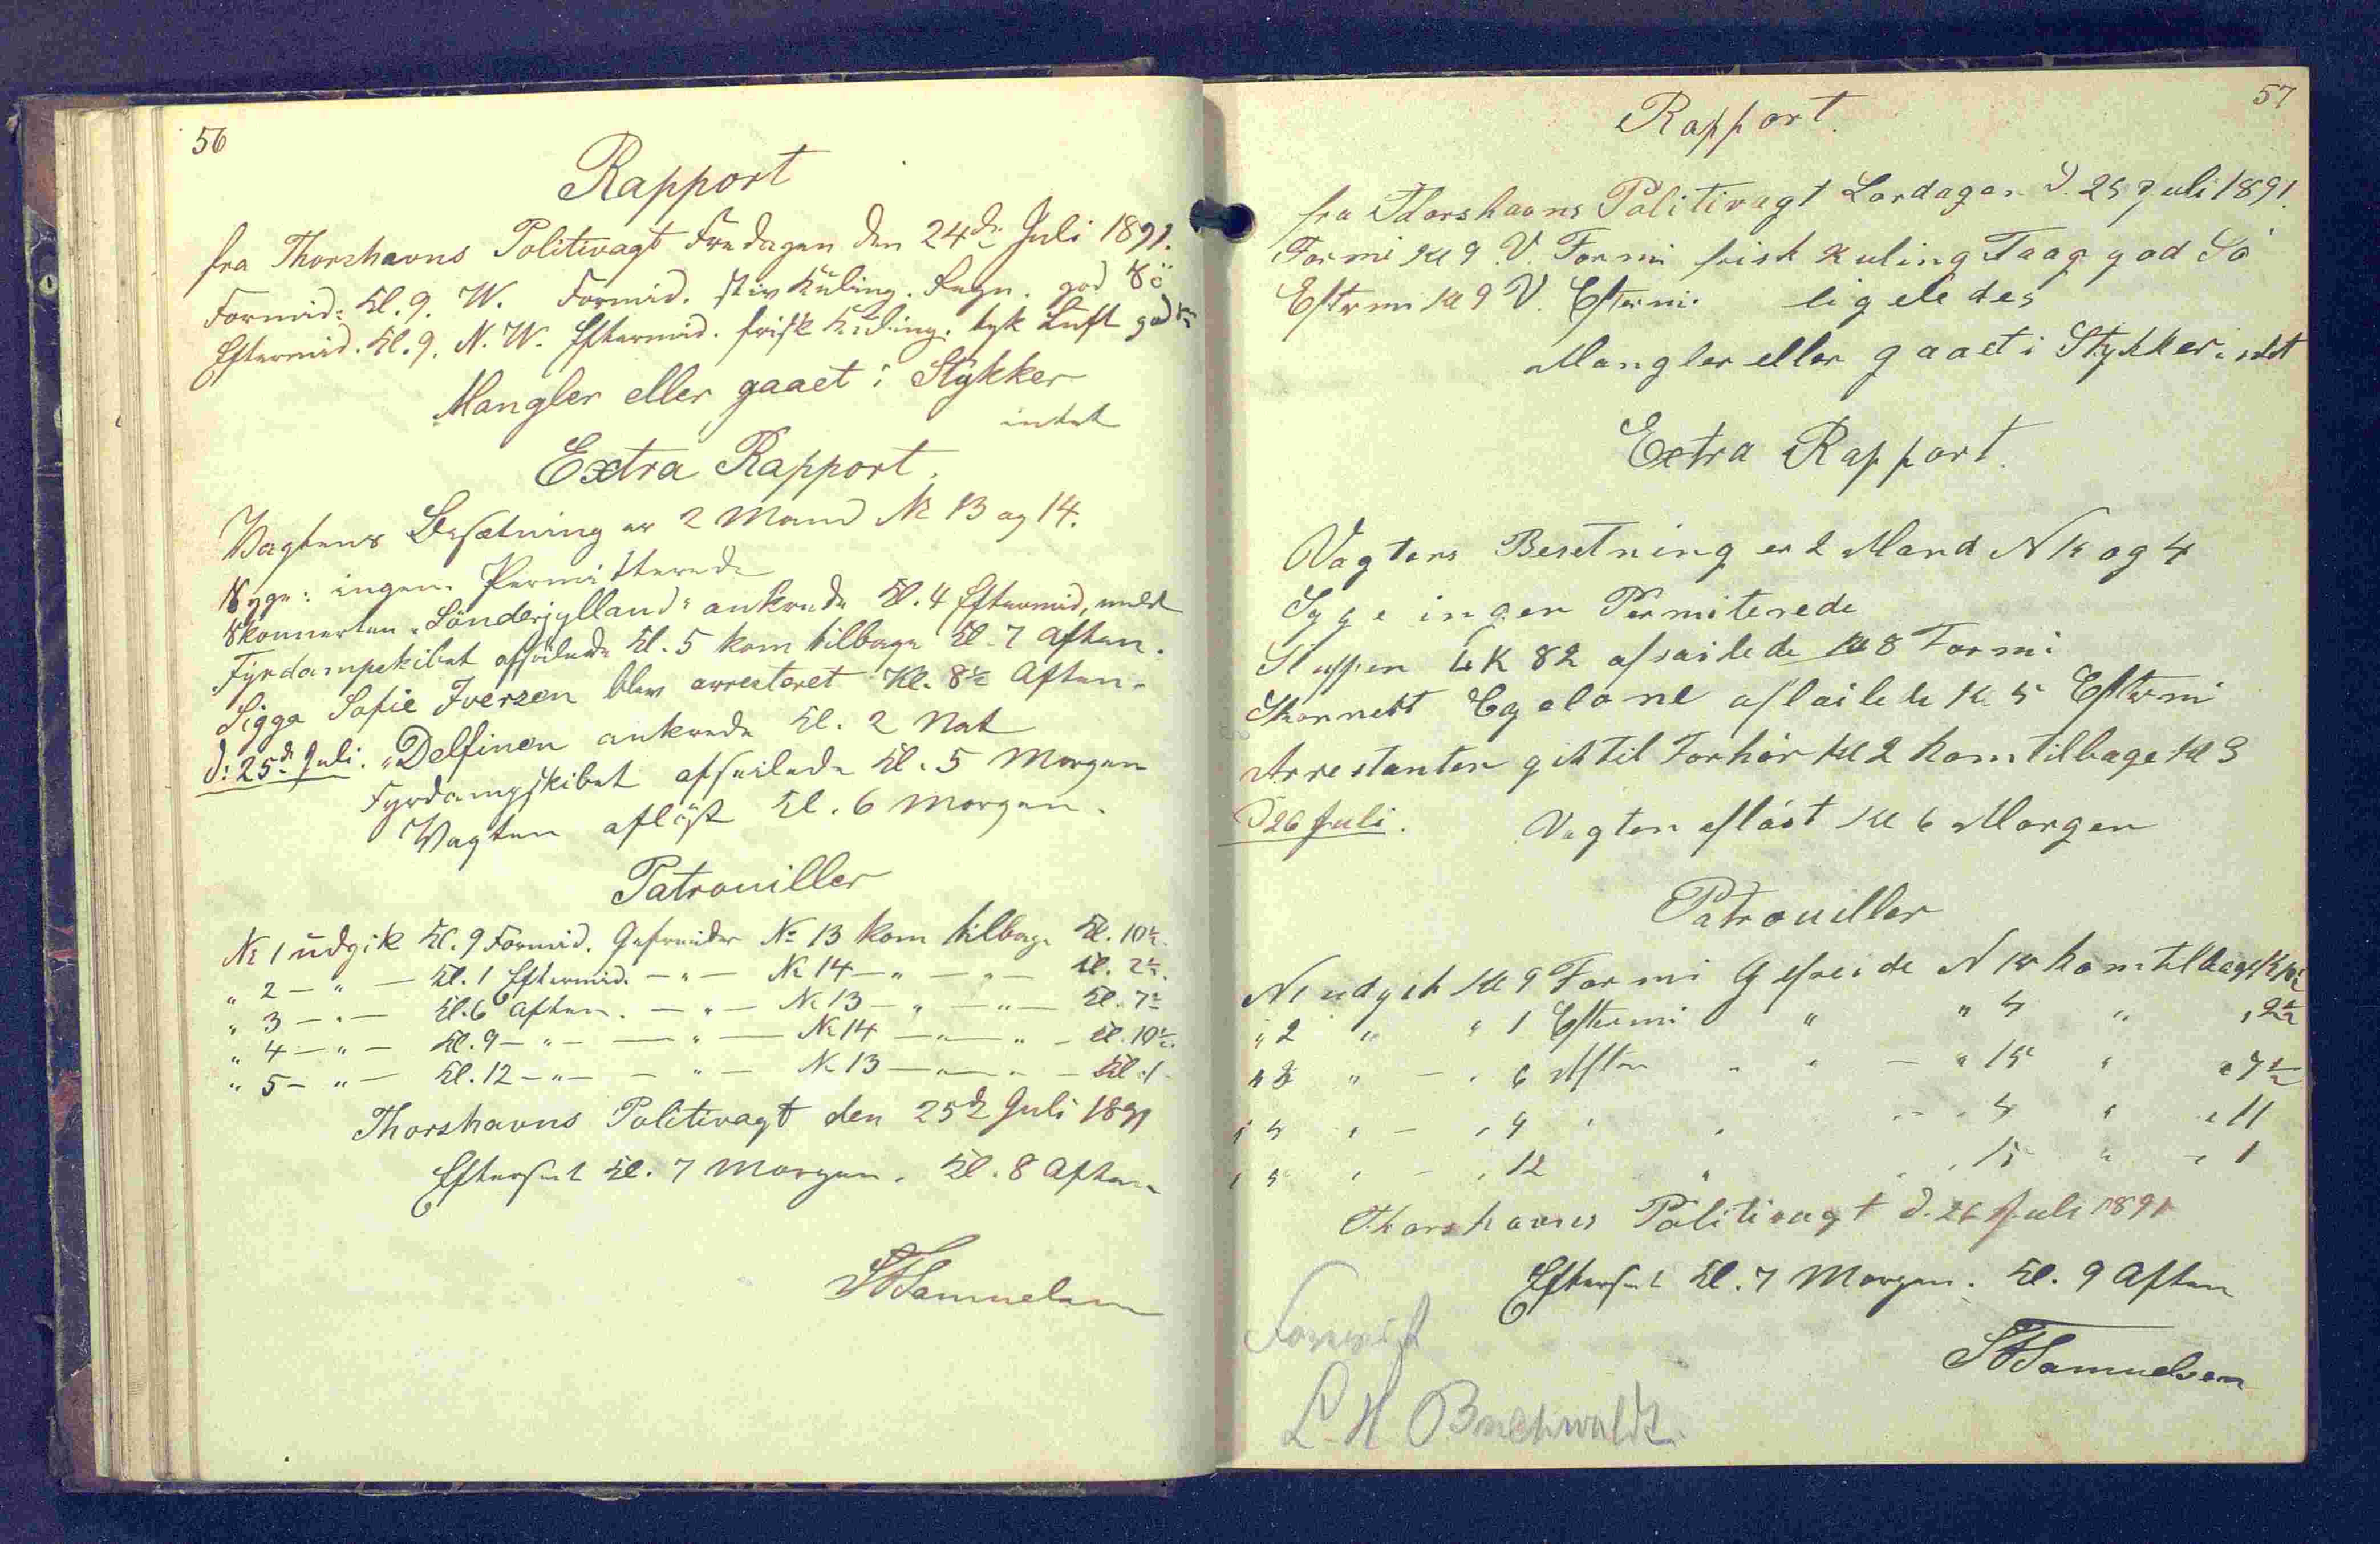 56
Rapport
fra Thorshavns Politivagt Fredagen den 24de Juli 1891.
Formid: Kl. 9. W. Formid. stiv Kuling. Regn. god Sö
Eftermid. Kl. 9. N. W. Eftermid. frisk Kuling. tyk Luft god
Mangler eller gaaet i Stykker
intet
Extra Rapport.
Vagtens Besætning er 2 Mand № 13 og 14.
Syge: ingen. Permitterede
Skonnerten "Sönderjylland" ankrede Kl. 4 Eftermid,
Fyrdampskibet afseilede Kl. 5 kom tilbage Kl. 7 Aften.
Sigga Sofie Iversen blev arresteret Kl. 8½ Aften.
d: 25de Juli. "Delfinen ankrede Kl. 2 Nat
Fyrdampskibet afseilede Kl. 5 Morgen
Vagten aflöst Kl. 6 Morgen.
Patrouiller
№ 1 udgik Kl. 9 Formid. Gefreider № 13 kom tilbage Kl. 10½.
" 2 — " — Kl. 1 Eftermid. — " — № 14 — " — " — Kl. 2½.
" 3 — " — Kl. 6 Aften. — " — № 13 — " — " — Kl. 7½
" 4 — " — Kl. 9 — " — — " — № 14 — " — " — Kl. 10½.
" 5 — " — Kl. 12 — " — — " — № 13 — " — " — Kl. 1
Thorshavns Politivagt den 25de Juli 1891
Efterset Kl. 7 Morgen. Kl. 8 Aften.
Samuelsen
57
Rapport.
fra Thorshavns Politivagt Lordagen d. 25 Juli 1891.
Formi Kl 9 V. Formi frisk Kuling Taag god Sö
Eftermi Kl 9 V. Eftermi ligeledes
Mangler eller gaaet i Stykker intet
Extra Rapport.
Vagtens Besetning er 2 Mand N 15 og 4
Syge ingen Permiterede
Sluppen 82 afsailede Kl 8 Formi
Skonnert Kl 5 Eftermi
Arrestanten gik til Forhör Kl 2 kom tilbage Kl 3
d 26 Juli. Vagten aflöst Kl 6 Morgen
Patrouiller
N 1 udgik Kl 9 Formi Gefreide N 15 kom tilbage Kl 10½
" 2 " " 1 Eftermi " " 4 " " 2½
" 3 " — " 6 Aften " " — " 15 " " 7½
" 4 " — " 9 " " " 4 " " 11
" 5 " — " 12 " " 15 " " 1
Thorshavns Politivagt d. 26 Juli 1891
Efterset Kl. 7 Morgen. Kl. 9 Aften
Samuelsen
Forevist
L. H. Buchwaldt.